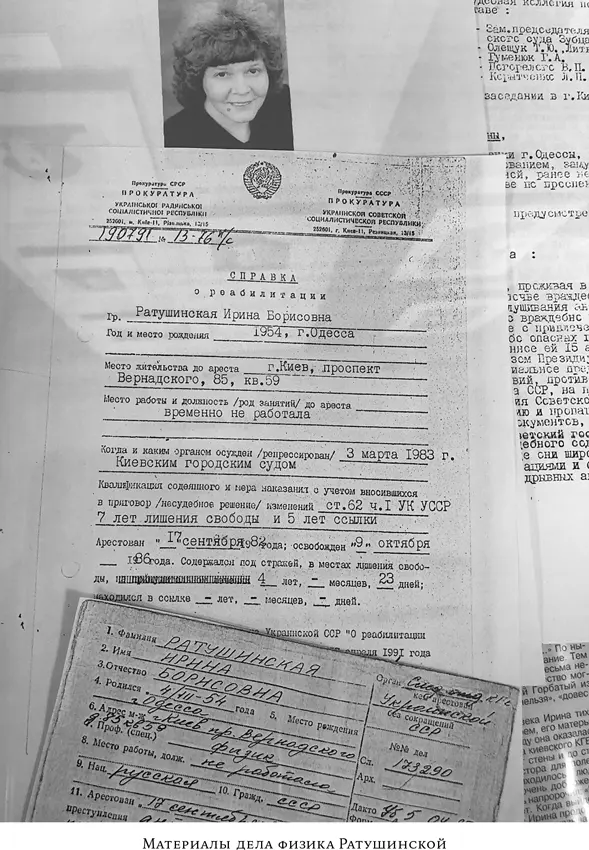 дебная коллегия по
таве :
- Зам.председателя
ского суда Зубца
- Олещук Т.Ю., Литв
- Гуменюк Г.А.
- Погорелого В.П.
заседании в г.Ки
ны,
ки г.Одессы,
ованием, заму
ей, ранее не
ве по проспек
предусмотре
а :
, проживая в
Прокуратура СРСР
ПРОКУРАТУРА
УКРАЇНСЬКОЇ РАДЯНСЬКОЇ
СОЦІАЛІСТИЧНОЇ РЕСПУБЛІКИ
252601, м. Київ-11, Різницька, 13/15
Прокуратура СССР
ПРОКУРАТУРА
УКРАИНСКОЙ СОВЕТСКОЙ
СОЦИАЛИСТИЧЕСКОЙ РЕСПУБЛИКИ
252601, г. Киев-11, Резницкая, 13/15
190791 № 13-
СПРАВКА
о реабилитации
Гр. Ратушинская Ирина Борисовна
Год и место рождения 1954, г.Одесса
Место жительства до ареста г.Киев, проспект
Вернадского, 85, кв.59
Место работы и должность /род занятий/ до ареста
временно не работала
Когда и каким органом осужден /репрессирован/ 3 марта 1983 г.
Киевским городским судом
Квалификация содеянного и мера наказания с учетом вносившихся
в приговор /несудебное решение/ изменений ст.62 ч.I УК УССР
7 лет лишения свободы и 5 лет ссылки
Арестован "17" сентября 1982 года; освобожден "9" октября
1986 года. Содержался под стражей, в местах лишения свобо-
ды, 4 лет, - месяцев, 23 дней;
находился в ссылке - лет, - месяцев, - дней.
Украинской ССР "О реабилитации
апреля 1991 года
1. Фамилия РАТУШИНСКАЯ
2. Имя ИРИНА
3. Отчество БОРИСОВНА
4. Родился 4/III-54 года 5. Место рождения
г. Одесса
6. Адрес м-ж г. Киев пр. Вернадского
д. 85 кв 59
7. Проф. (спец.) физик
8. Место работы, долж. не работала
9. Нац. русская 10. Гражд. СССР
11. Арестован "17 сентяб
преступления
Орган
Украинской
без сокращений
ССР
№№ дел
Сл. 173290
Арх.
Дакто
враждебно
с привлече
опасных г
ее 15 а
зом Президиу
вий, против
СССР, на п
ия Советско
ию и пропаг
окументов,
ветский гос
дебного сод
е они широ
ациями и
." По ны-
ание Тем
весьма не-
Горбатый из
ека Ирина тих
ду она оказала
киевского КГБ
МАТЕРИАЛЫ ДЕЛА ФИЗИКА РАТУШИНСКОЙ